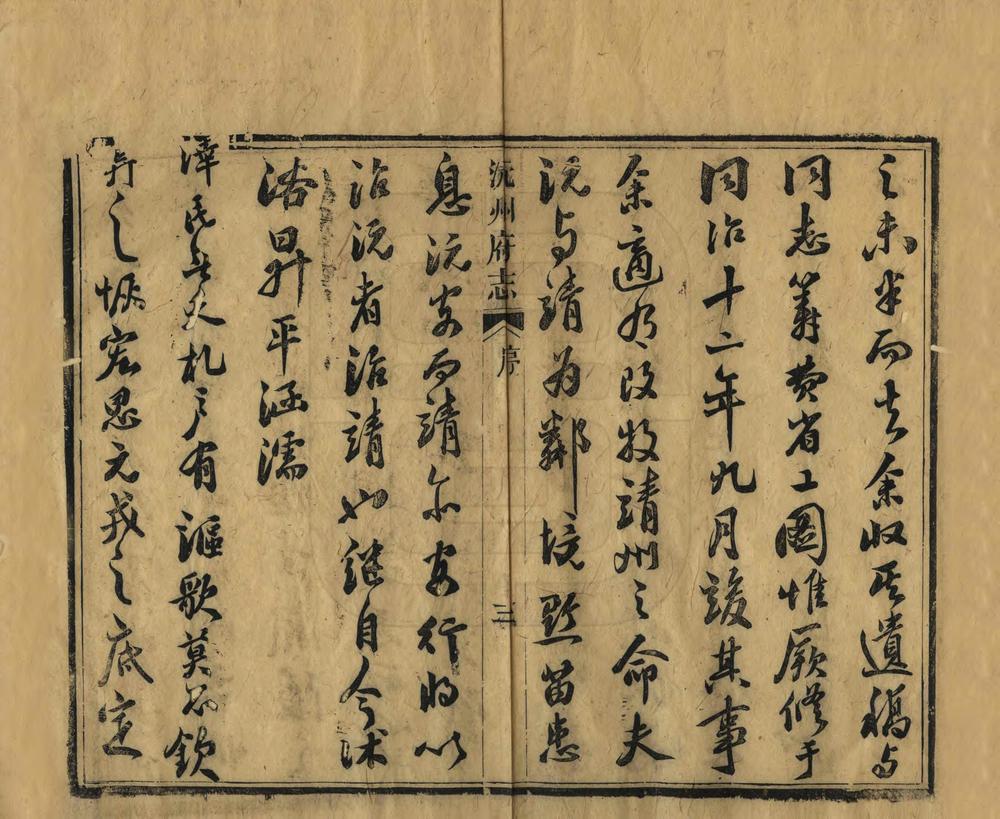 之未半而去余收其遺稿与
同志籌费省工圖惟厥修于
同治十二年九月竣其事
余適有改牧靖州之命夫
沅与靖为鄰境黔苗患
沅州府志 序 三
息沅安而靖亦安行將以
治沅者治靖也继自今沭
浴昇平涵濡
澤民無夭札户有謳歌莫不欽
之恢宏思元戎之底定